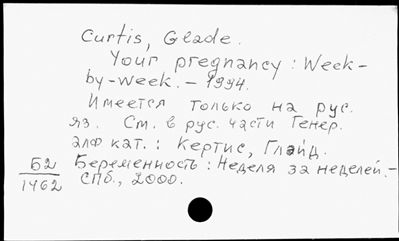 Curtis, Glade.
Your pregnancy : Week-
by-week. – 1994.
Имеется только на рус.
яз. См. в рус. части Генер.
алф кат. : Кертис, Глэйд.
Б2
1462
Беременность : Неделя за неделей. –
СПб., 2000.